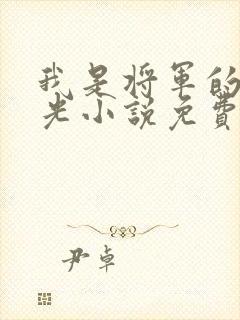 我是将军的
光小説免費
尹卓